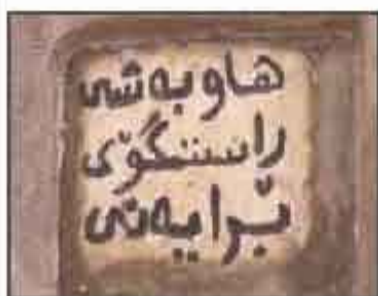 هاوبەشی
ڕاستگۆی
برایەتی